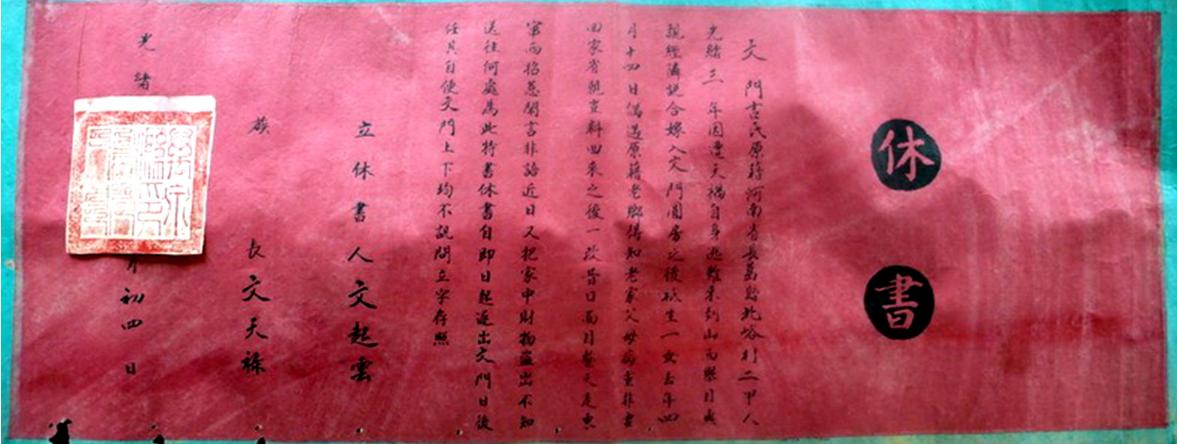 休書
文門古氏原籍河南省長葛縣北峪村二甲人
光緒三年因遭天禍自身逃難來到山西舉目無
親經隣說合嫁入文門圓房之後祗生一女去年四
月十四日偶遇原籍老鄉得知老家父母病重非要
回家省親豈料回來之後一改昔日面目整天走東
窜西招惹閑言非語近日又把家中財物盜出不知
送往何處為此特書休書自即日起逐出文門日後
任其自便文門上下均不說問立字存照
立休書人文起雲
族長文天祿
光緒 月初四日